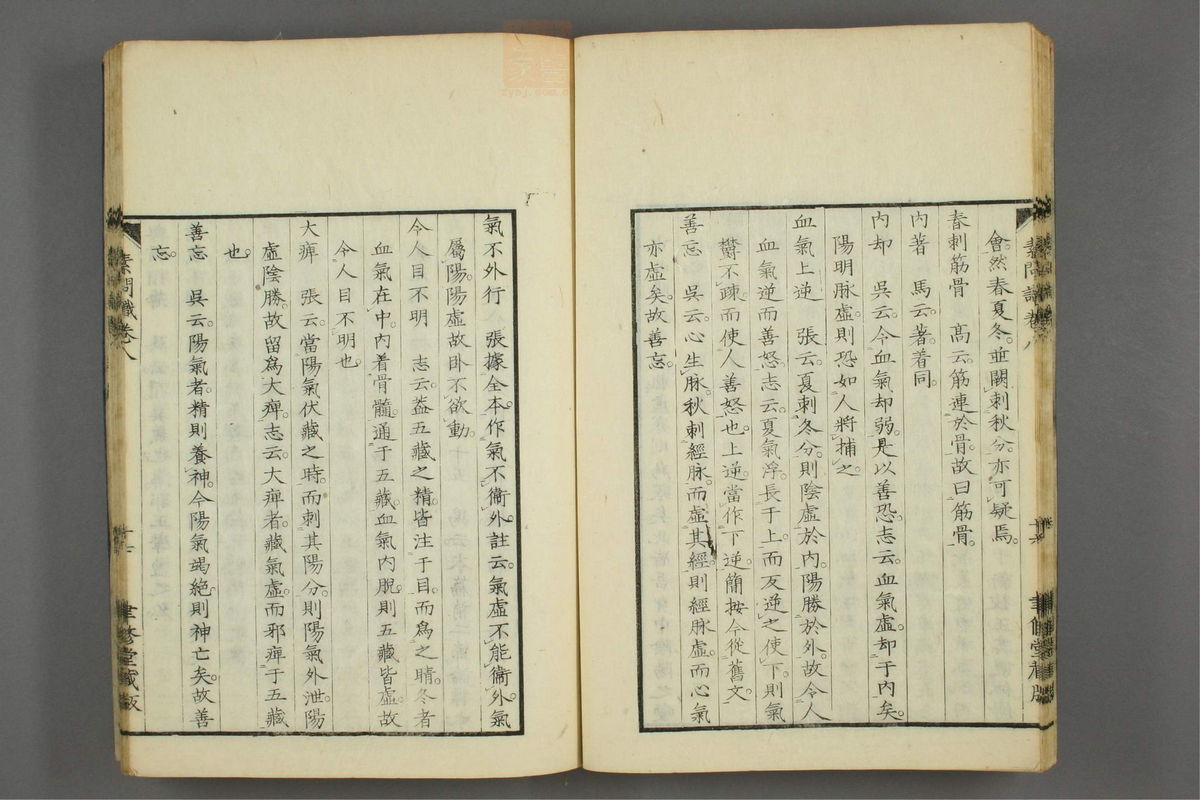 會然春夏冬並闕刺秋分亦可疑焉。
春刺筋骨　高云。筋連於骨。故曰筋骨。
內著　馬云。著着同。
內却　吳云。今血氣却弱。是以善恐。志云。血氣虛却于內矣。
陽明脉虛。則恐如人將捕之。
血氣上逆　張云。夏刺冬分。則陰虛於內。陽勝於外。故令人
血氣逆而善怒。志云。夏氣浮長于上。而反逆之使下。則氣
鬱不疎。而使人善怒也。上逆當作下逆。簡按今從舊文。
善忘　吳云。心生脉。秋刺經脉。而虛其經。則經脉虛。而心氣
亦虛矣。故善忘。
素問識卷八
聿修堂藏版
氣不外行　張據全本。作氣不衞外。註云。氣虛不能衞外。氣
屬陽。陽虛故卧不欲動。
令人目不明　志云。蓋五藏之精。皆注于目而爲之睛。冬者
血氣在中。內着骨髓。通于五藏。血氣內脫。則五藏皆虛。故
令人目不明也。
大痺　張云。當陽氣伏藏之時。而刺其陽分。則陽氣外泄。陽
虛陰勝。故留爲大痺。志云。大痺者。藏氣虛。而邪痺于五藏
也。
善忘　吳云。陽氣者。精則養神。今陽氣竭絕。則神亡矣。故善
忘。
素問識卷八
聿修堂藏版